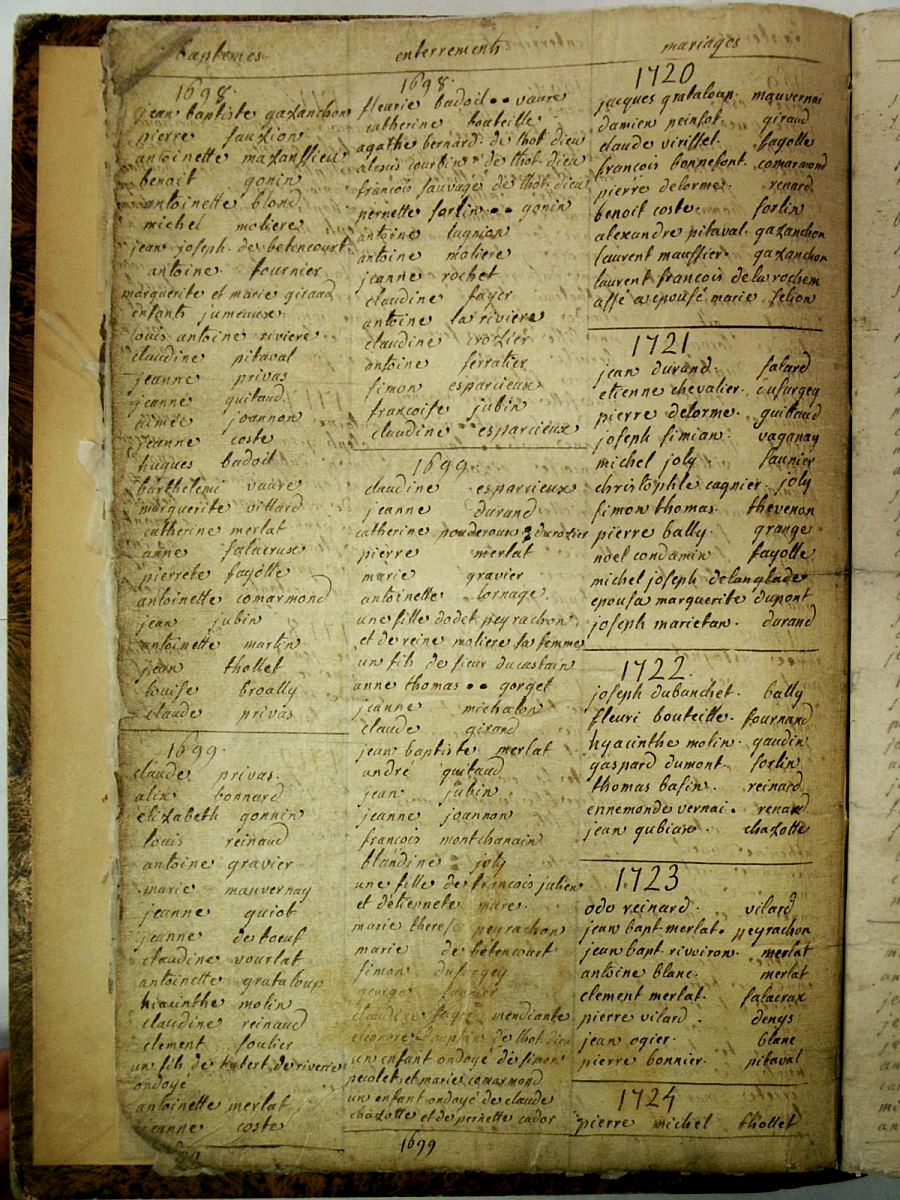 baptemes
1698.
jean baptiste gazanchon
pierre fauzion
antoinette mazanssieu
benoit gonin
antoinette blond
michel moliere
jean joseph de betencourt
antoine fournier
marguerite et marie giraud
enfants jumeaux
louis antoine riviere
claudine pitaval
jeanne privas
jeanne guitaud
aimée joannon
jeanne coste
hugues badoil
barthelemi vaure
marguerite villard
catherine merlat
anne falacrux
pierrete fayolle
antoinette comarmond
jean jubin
antoinette martin
jean thollet
louise broally
claude privas
1699.
claude privas.
alix bonnard
elizabeth gonnin
louis reinaud
antoine gravier
marie mauvernay
jeanne guiot
jeanne de boeuf
claudine vourlat
antoinette grataloup
hiacinthe molin
claudine reinaud
clement foulier
un fils de hubert de riverie
ondoyé
antoinette merlat
jeanne coste
enterrements
1698.
fleurie badoil vaure
catherine bouteille
agathe bernard de l'hot dieu
alexis courbin de l'hot dieu
françois sauvage de l'hot dieu
pernette forlin gonin
antoine lugnion
antoine moliere
jeanne rochet
claudine fayer
antoine la riviere
claudine crozier
antoine ferratier
simon esparcieux
françoise jubin
claudine esparcieux
1699.
claudine esparcieux
jeanne durand
catherine pouderoux durozier
pierre merlat
marie gravier
antoinette tornage
une fille dodet peyrachon
et de reine moliere sa femme
un fils de sieur ducastain
anne thomas gorget
jeanne michalon
claude girand
jean baptiste merlat
andré guitaud
jean jubin
jeanne joannon
françois montchanain
blandine joly
une fille de françois julien
et d'etiennete mure.
marie therese peyrachon
marie de betencourt
simon dusurgey
george faurier
claudine fayer mendiante
de l'hot dieu
un enfant ondoyé de simon
pecolet et marie comarmond
un enfant ondoyé de claude
chazotte et de pernette cador
1699
mariages
1720
jacques grataloup. mauvernai
damien peinsot. giraud
claude virissel. fayolle
françois bonnefont. comarmond
pierre delorme. renard
benoit coste. forlin
alexandre pitaval. gazanchon
laurent maussier. gazanchon
laurent françois de la rochem
assé a epousé marie felion
1721
jean durand. salard
etienne chevalier. dusurgey
pierre delorme. guitaud
joseph simian. vaganay
michel joly faurier
christophle cagnier. joly
simon thomas. thevenon
pierre bally. grange
noel condamin fayolle
michel joseph delanglade
epousa marguerite dupont
joseph marietan. durand
1722.
joseph dubanchet. bally
fleuri bouteille. fournand
hyacinthe molin. gaudin
gaspard dumont. forlin
thomas basin. reinard
ennemonde vernai. renard
jean gubian. chazotte
1723
odo reinard. vilard
jean bapt merlat. peyrachon
jean bapt. rivoiron. merlat
antoine blanc. merlat
clement merlat. falacrux
pierre vilard. denys
jean ogier. blanc
pierre bonnier. pitaval
1724
pierre michel thollet